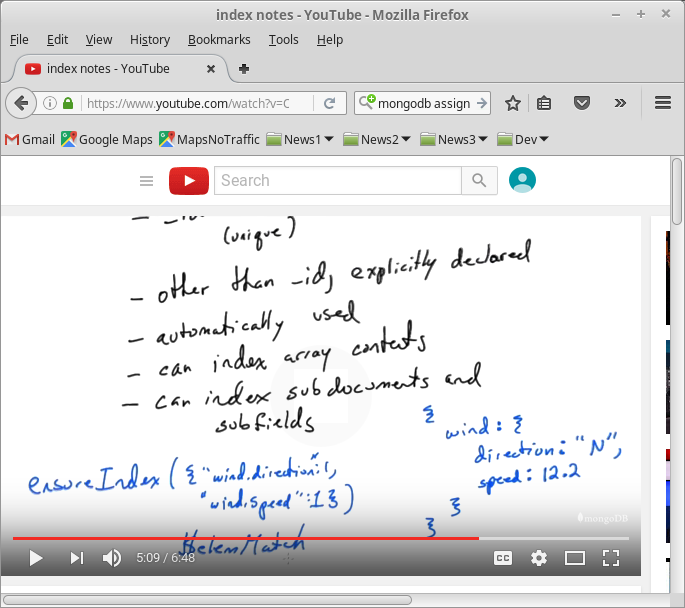 index notes - YouTube - Mozilla Firefox
File Edit View History Bookmarks Tools Help
index notes - YouTube
https://www.youtube.com/watch?v=C
mongodb assign
Gmail Google Maps MapsNoTraffic News1 News2 News3 Dev
Search
(unique)
- other than _id, explicitly declared
- automatically used
- can index array contents
- can index subdocuments and
subfields
{
wind: {
direction: "N",
speed: 12.2
}
}
ensureIndex({"wind.direction":1,
"wind.speed":1})
mongoDB
$elemMatch
5:09 / 6:48
CC